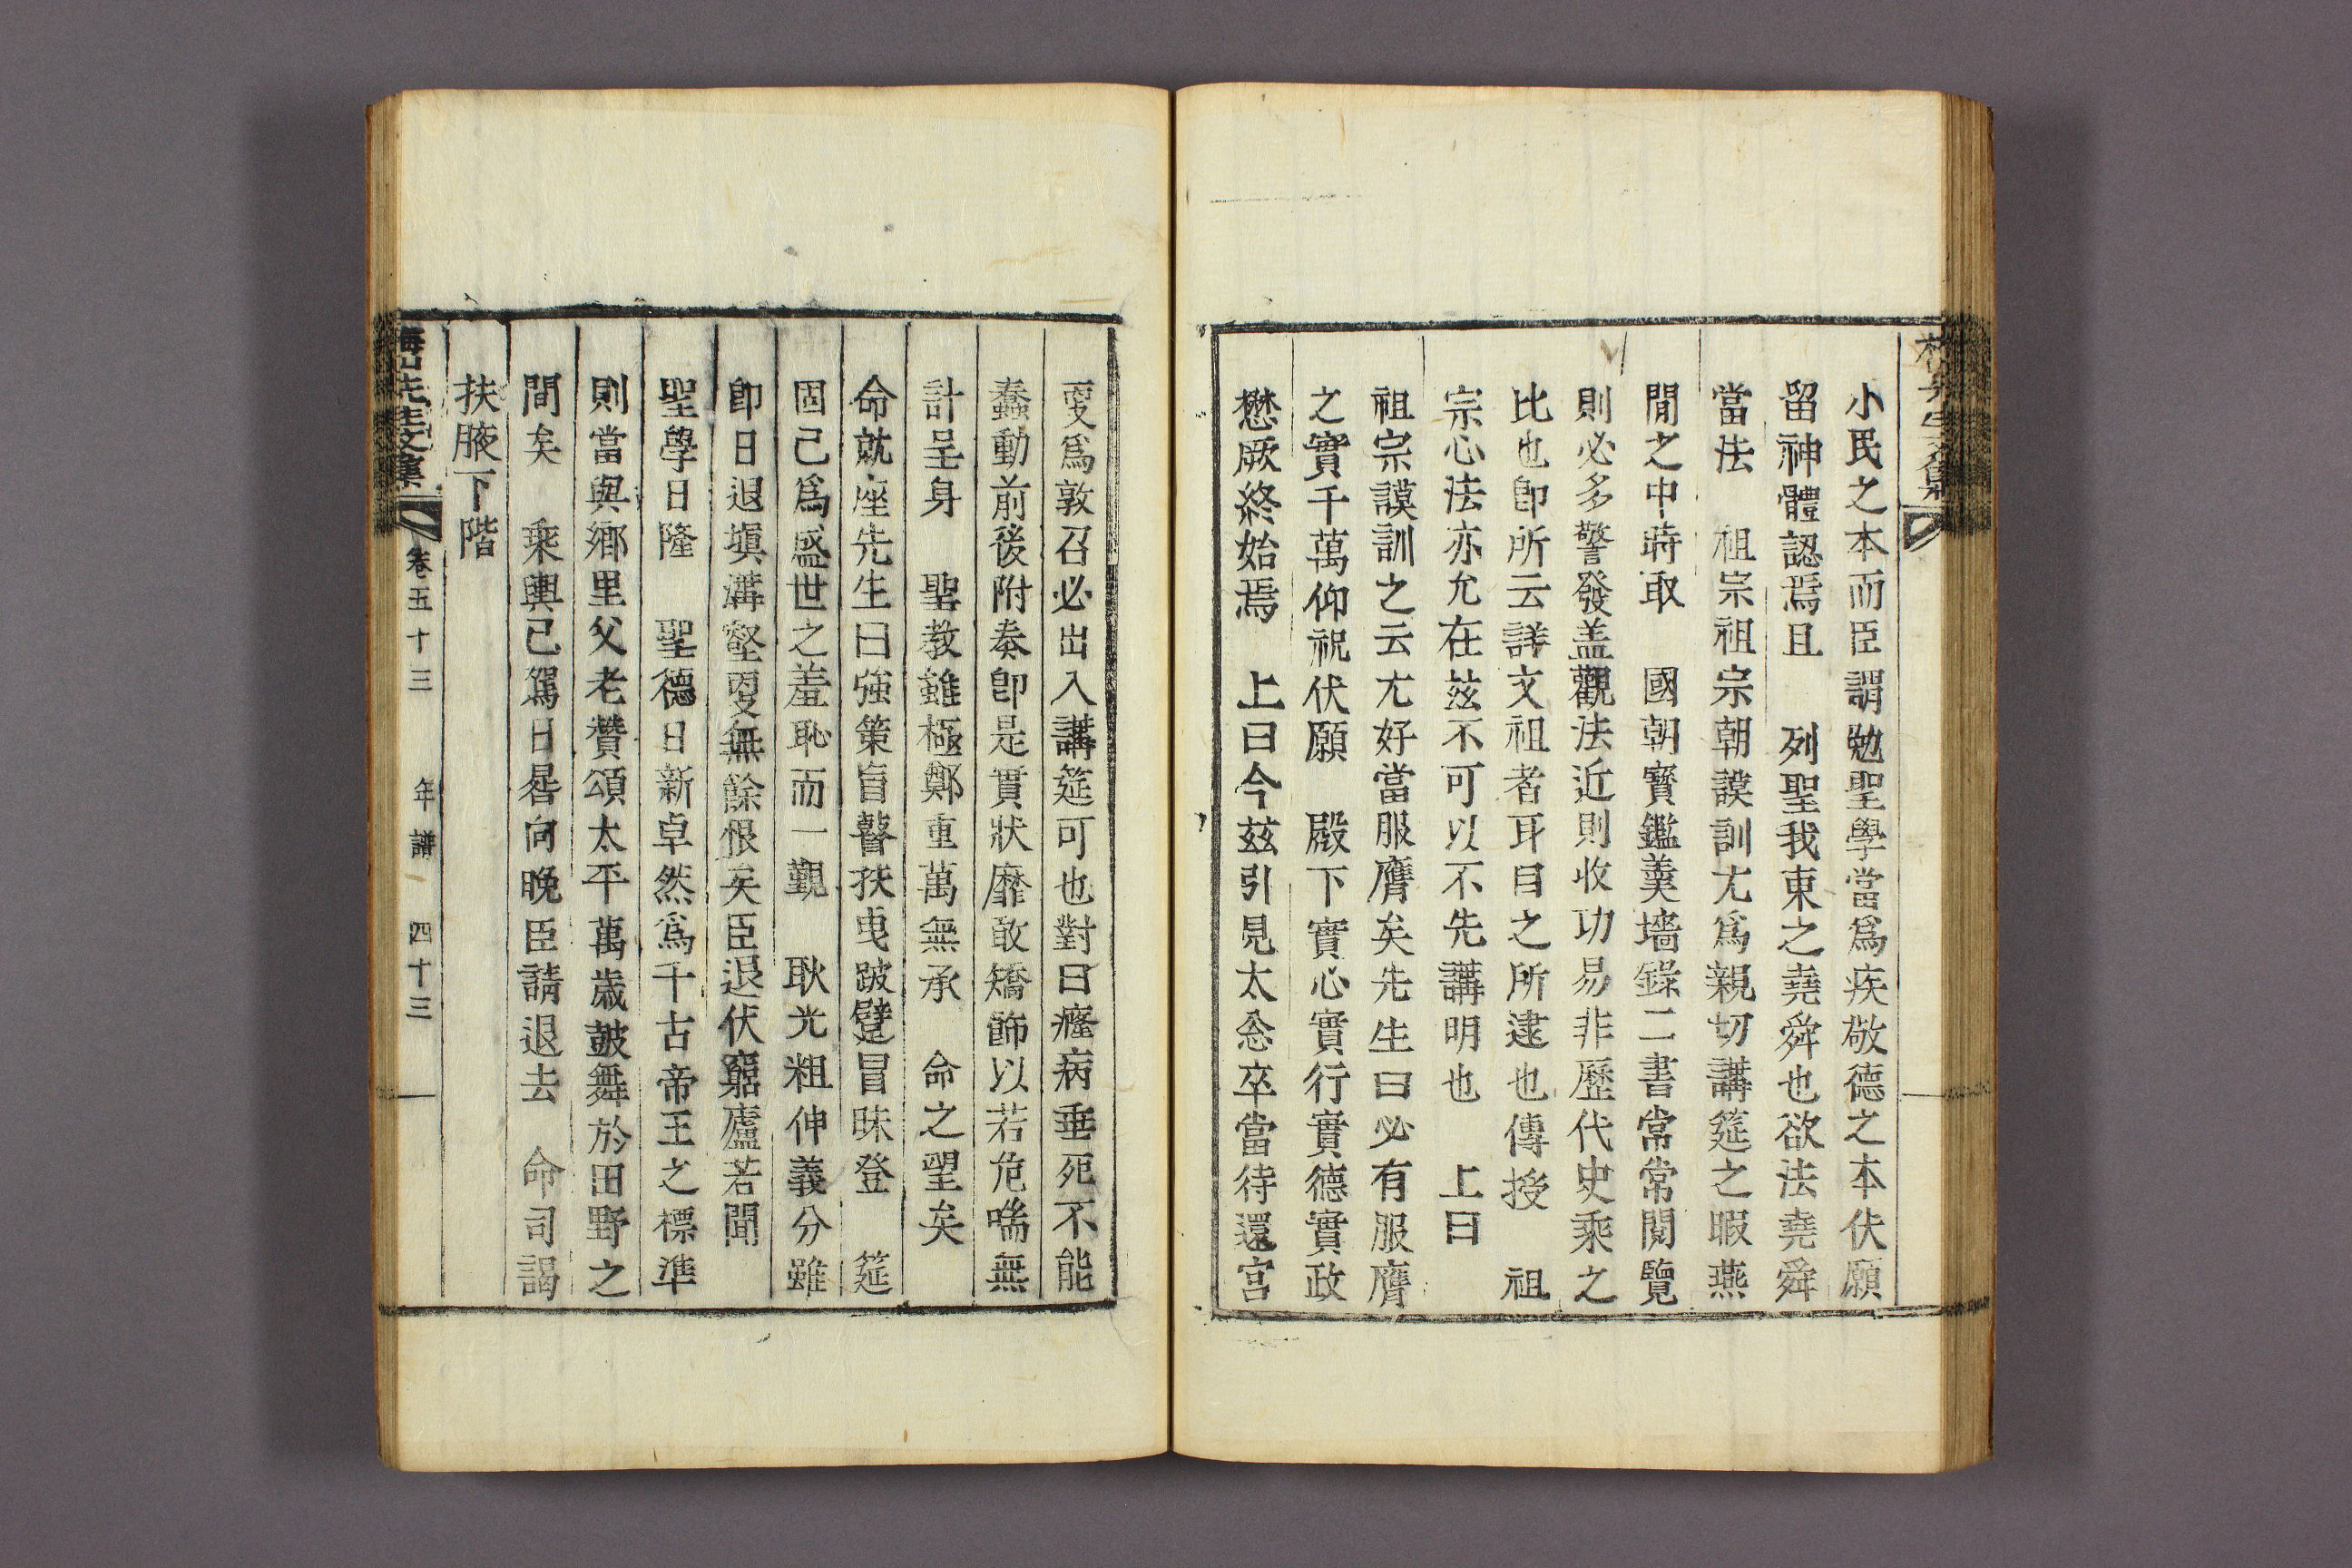 小民之本而臣謂勉聖學當爲疾敬德之本伏願
留神體認焉且 列聖我東之堯舜也欲法堯舜
當法 祖宗祖宗朝謨訓尤爲親切講筵之暇燕
閒之中蒔取 國朝寶鑑羹墻錄二書常常閱覽
則必多警發盖觀法近則收功易非歷代史乘之
比也卽所云詳文祖者耳目之所逮也傳授 祖
宗心法亦允在玆不可以不先講明也 上曰
祖宗謨訓之云尤好當服膺矣先生曰必有服膺
之實千萬仰祝伏願 殿下實心實行實德實政
懋厥終始焉 上曰今玆引見太怱卒當待還宮
更爲敦召必出入講筵可也對曰癃病垂死不能
蠢動前後附奏卽是實狀靡敢矯飾以若危喘無
計呈身 聖教雖極鄭重萬無承 命之望矣
命就座先生曰强策盲瞽扶曳跛躄冒昧登 筵
固已爲盛世之羞恥而一觀 耿光粗伸義分雖
卽日退塡溝壑更無餘恨矣臣退伏窮廬若聞
聖學日隆 聖德日新卓然爲千古帝王之標準
則當與鄕里父老贊頌太平萬歲鼓舞於田野之
間矣 乘輿已駕日晷向晩臣請退去 命司謁
扶腋下階
梅山先生文集 卷五十三 年譜 四十三